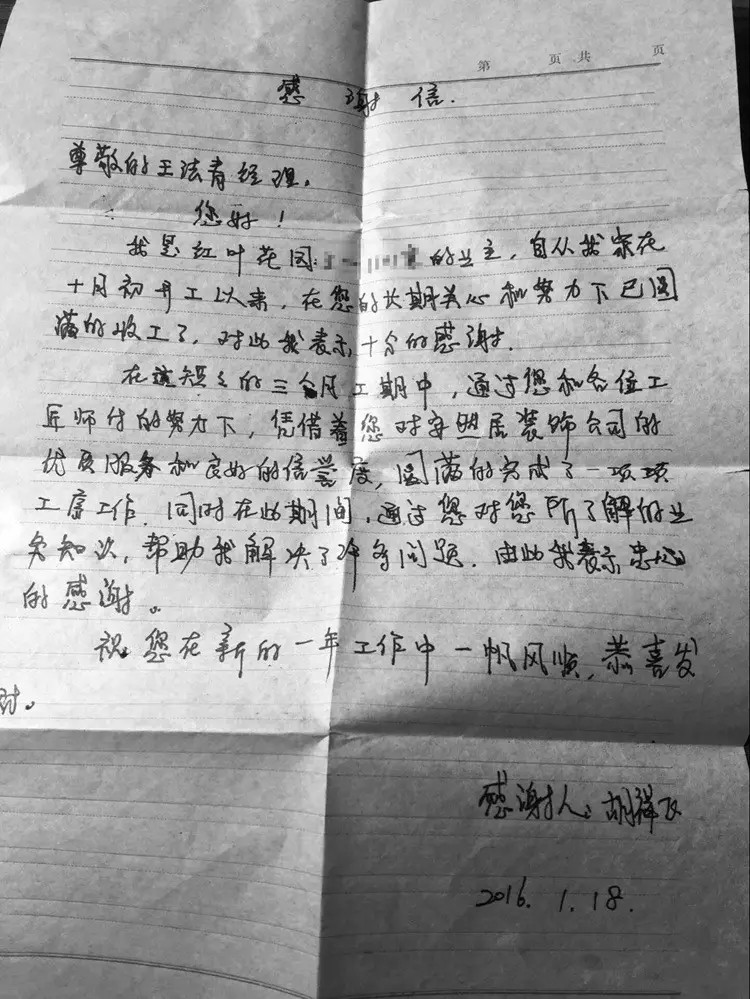 第 页 共 页
感谢信.
尊敬的王法青经理.
您好!
我是红叶花园: 的业主,自从我家在
十月初开工以来,在您的长期关心和努力下已圆
满的收工了,对此我表示十分的感谢.
在这短短的三个月工期中,通过您和各位工
匠师付的努力下,凭借着您对安照居装饰公司的
优质服务和良好的信誉度,圆满的完成了一项项
工序工作.同时在此期间,通过您对您所了解的业
务知识,帮助我解决了许多问题.由此我表示忠心
的感谢。
祝您在新的一年工作中一帆风顺,恭喜发
财。
感谢人:胡祥
2016.1.18.